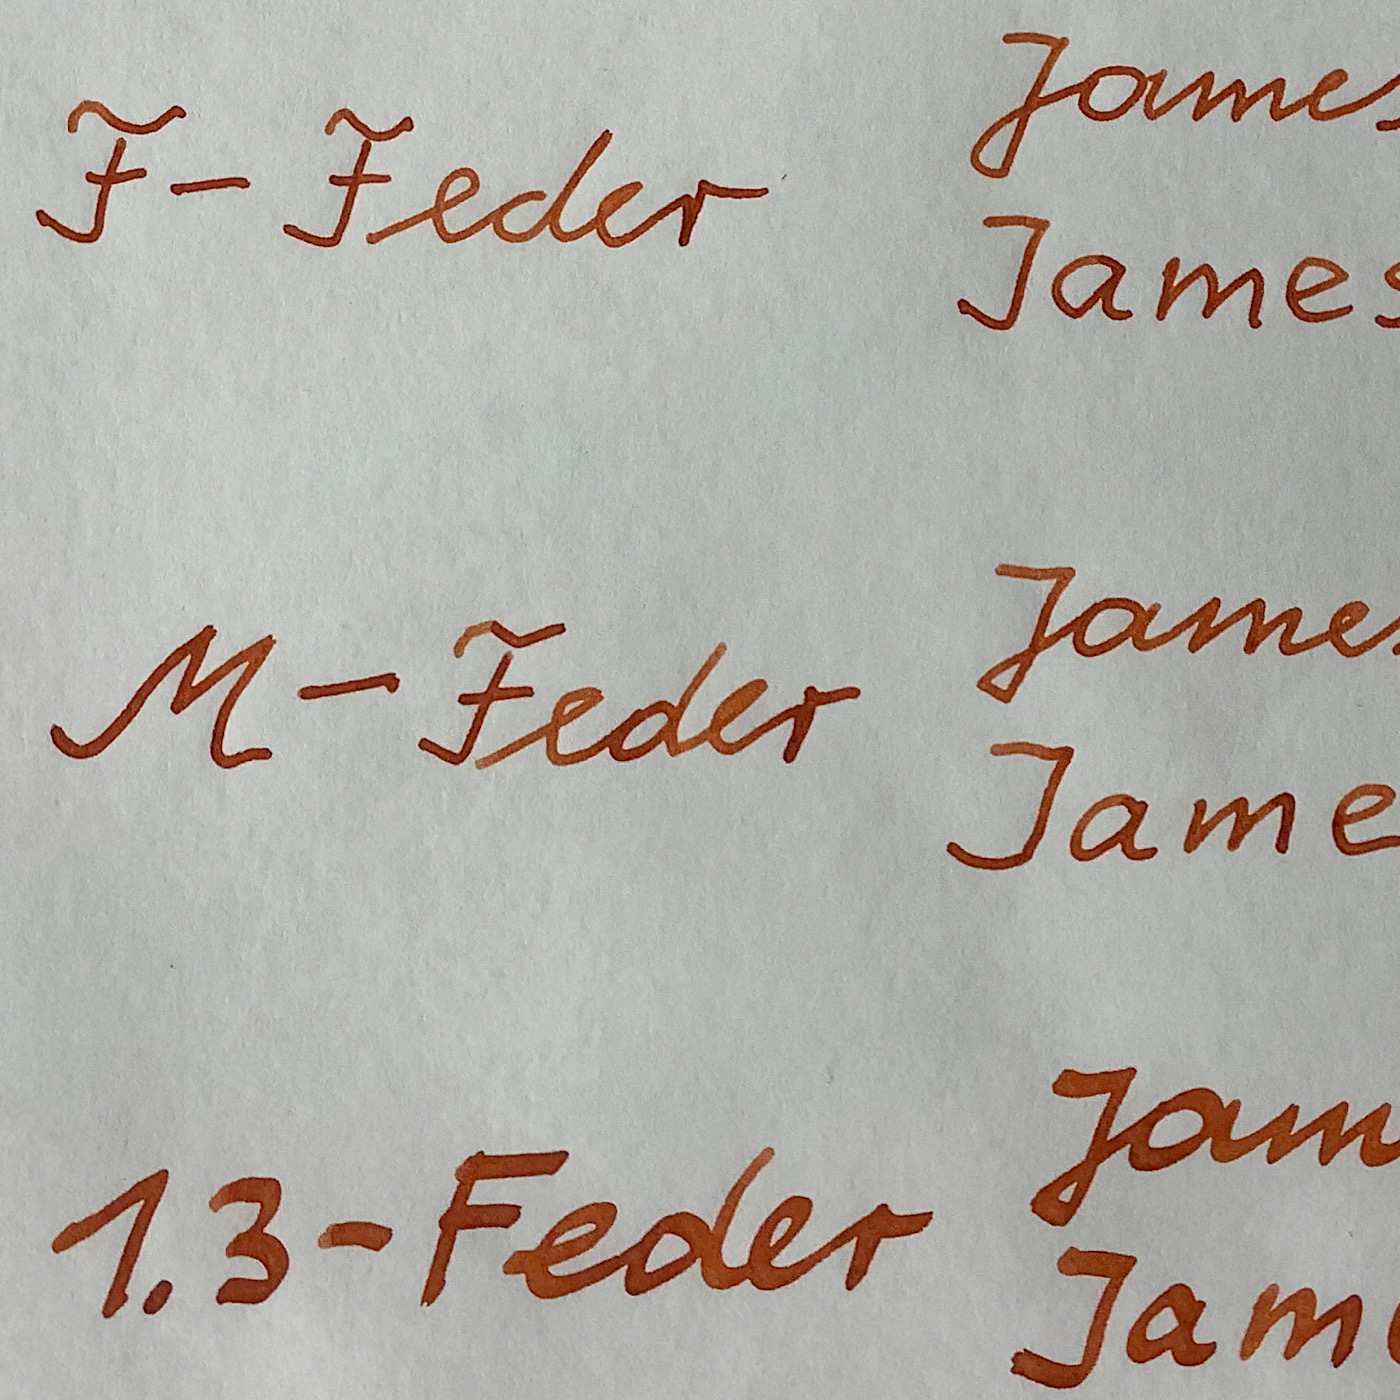 James
F-Feder
James
James
M-Feder
Jame
Jam
1.3-Feder
Jam